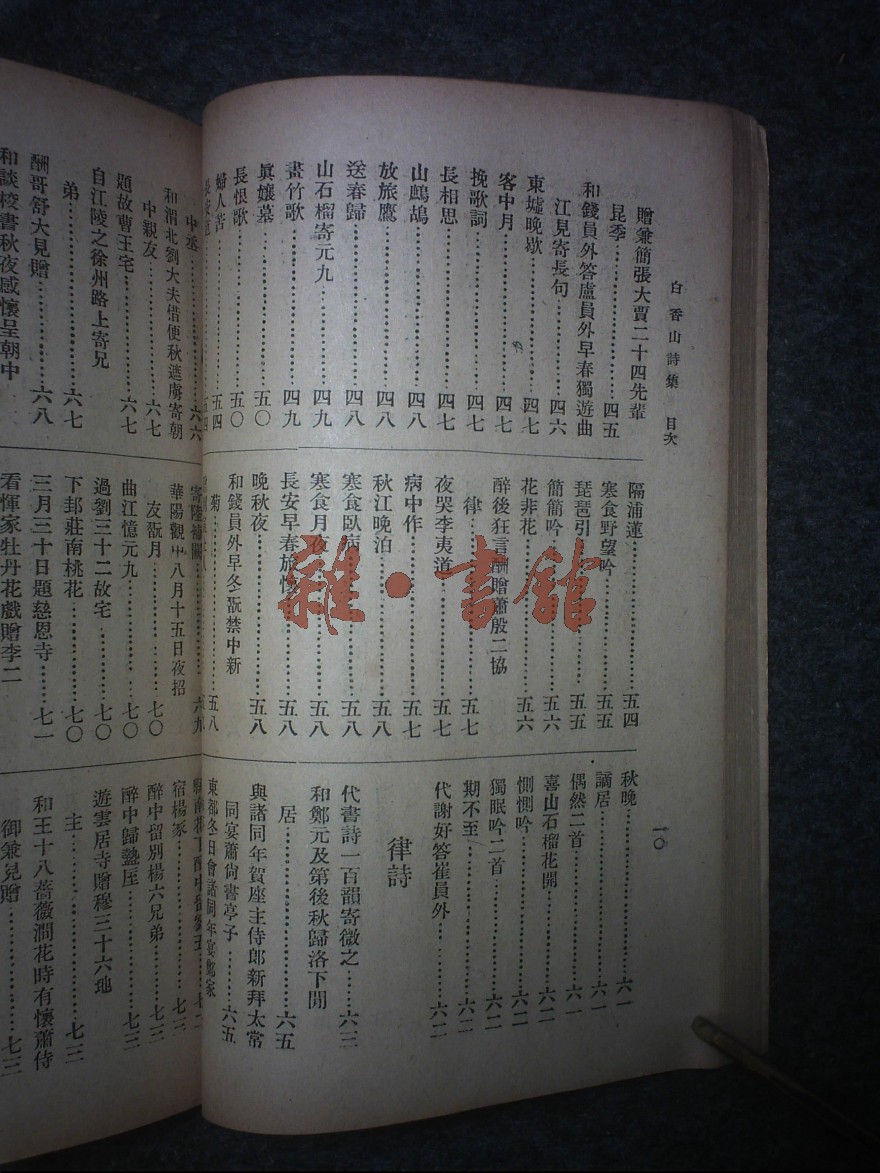 白香山詩集 目次
一〇
贈兼簡張大賈二十四先輩
昆季……四五
和錢員外答盧員外早春獨遊曲
江見寄長句……四六
東墟晚歇……四七
客中月……四七
挽歌詞……四七
長相思……四七
山鷓鴣……四八
放旅鴈……四八
送春歸……四八
山石榴寄元九……四九
畫竹歌……四九
眞孃墓……五〇
長恨歌……五〇
婦人苦……五四
隔浦蓮……五四
寒食野望吟……五五
琵琶引……五五
簡簡吟……五六
花非花……五六
醉後狂言酬贈蕭殷二協
律……五七
夜哭李夷道……五七
病中作……五七
秋江晚泊……五八
寒食臥病……五八
寒食月夜……五八
長安早春旅懷……五八
晚秋夜……五八
和錢員外早冬翫禁中新
菊……五八
秋晚……六一
謫居……六一
偶然二首……六一
喜山石榴花開……六二
惻惻吟……六二
獨眠吟二首……六二
期不至……六二
代謝好答崔員外……六二
律詩
代書詩一百韻寄微之……六三
和鄭元及第後秋歸洛下閒
居……六五
與諸同年賀座主侍郎新拜太常
同宴蕭尙書亭子……六五
東都冬日會諸同年宴鄭家
中丞……六六
和渭北劉大夫借便秋遮虜寄朝
中親友……六七
題故曹王宅……六七
自江陵之徐州路上寄兄
弟……六七
酬哥舒大見贈……六八
和談校書秋夜感懷呈朝中
寄陸補闕……六九
華陽觀中八月十五日夜招
友翫月……七〇
曲江憶元九……七〇
過劉三十二故宅……七〇
下邽莊南桃花……七〇
三月三十日題慈恩寺……七一
看惲家牡丹花戲贈李二
宿楊家……七三
醉中留別楊六兄弟……七三
醉中歸盩厔……七三
遊雲居寺贈穆三十六地
主……七三
和王十八薔薇澗花時有懷蕭侍
御兼見贈……七三
雜·書館